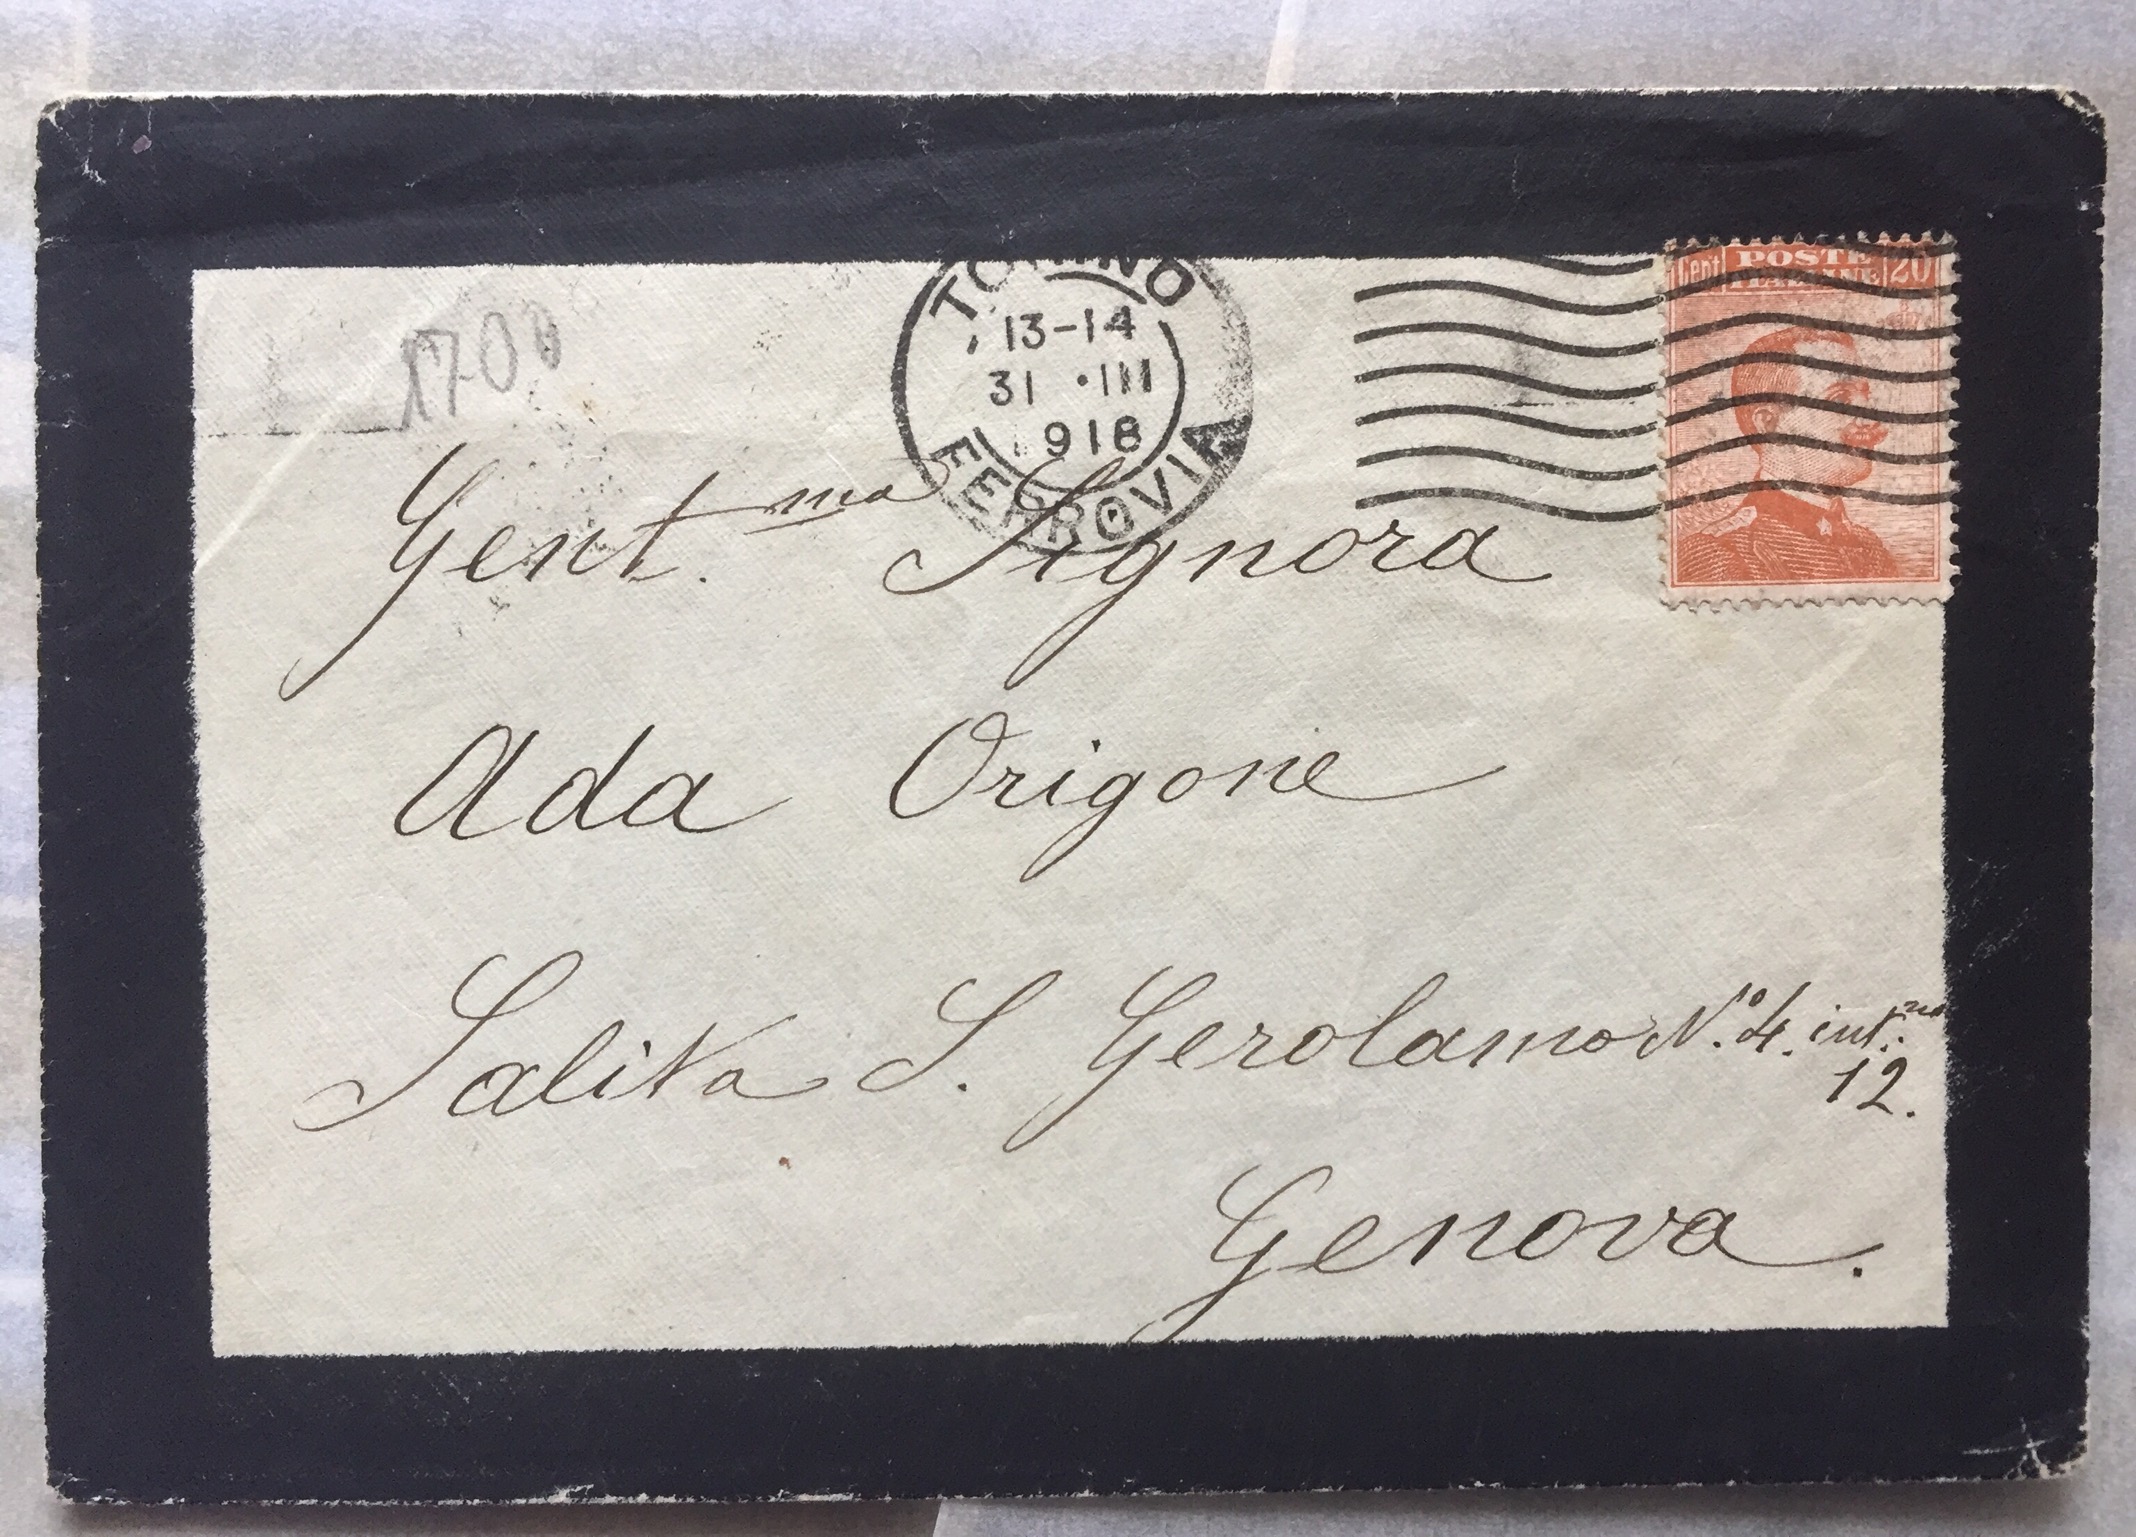 1700
TORINO
13-14
31 · III
1918
FERROVIA
Cent POSTE 20
ITALIANE
Gent.ma Signora
Ada Origone
Salita S. Gerolamo N.o 4. int.no
12.
Genova.